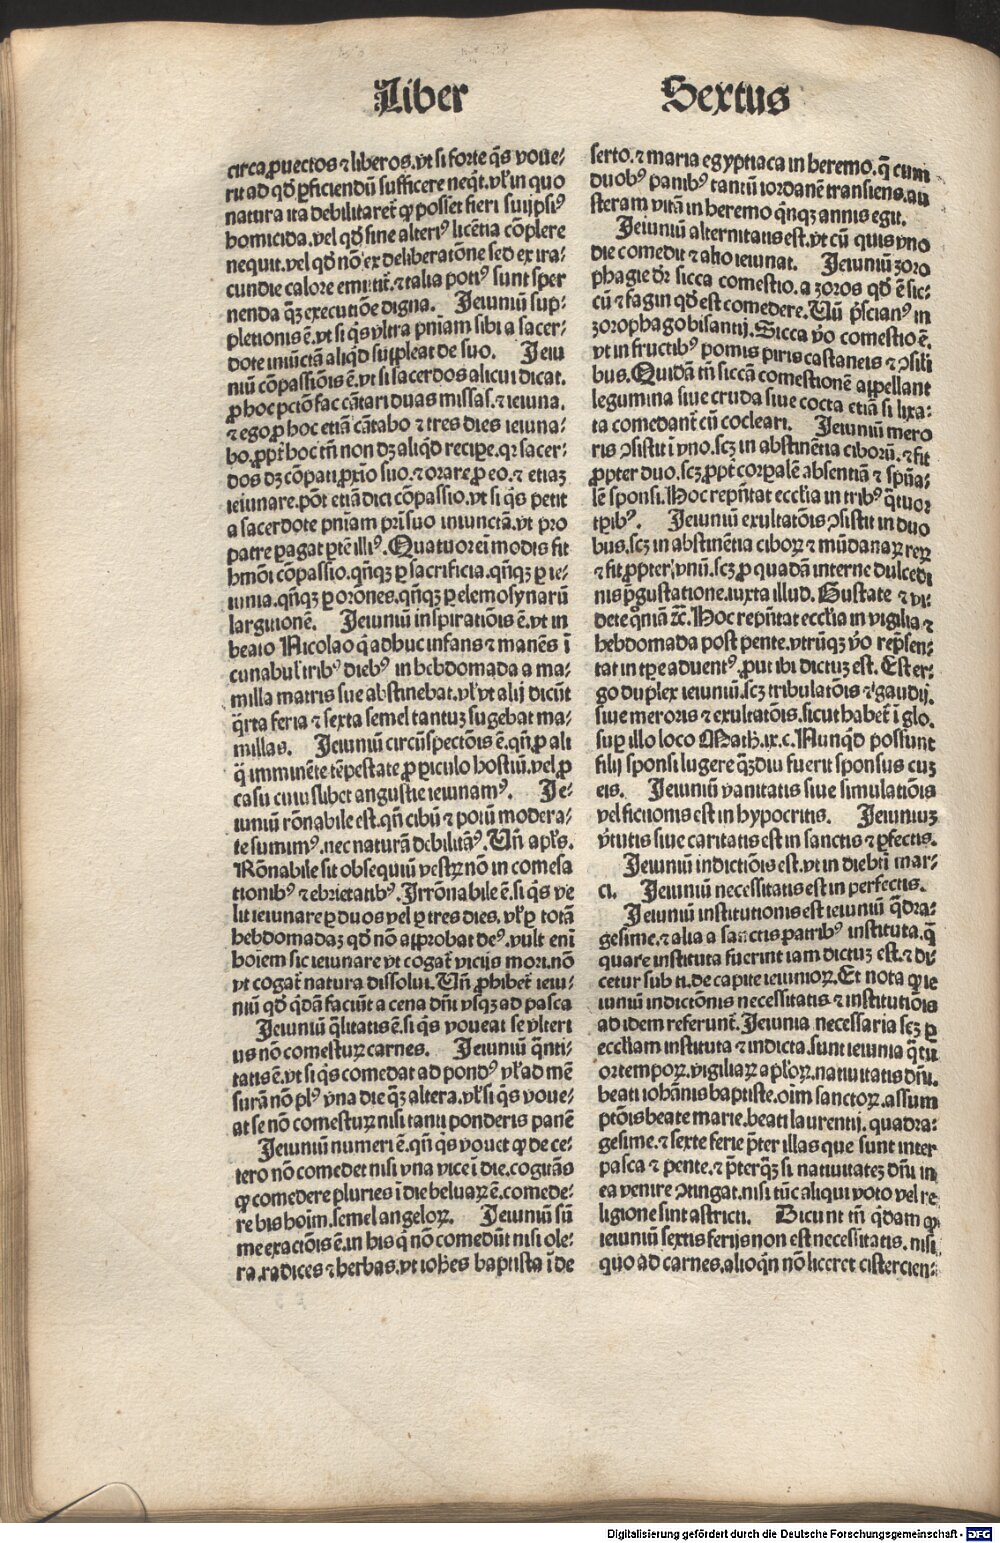 Liber Sextus
circa ꝓuectos ⁊ liberos. vt si forte q̄s voue⸗
rit ad qḋ ꝑficiendū sufficere neq̇t. vł in quo
natura ita debilitaret̃ ꝙ posset fieri suijpsiꝰ
homicida. vel qḋ sine alteriꝰ licētia cōplere
nequit. vel qḋ nō ex deliberatōne sed ex ira⸗
cundie calore emittit̃. ⁊ talia potiꝰ sunt sper
nenda q̄ꝫ executiōe digna. Jeiuniū sup⸗
pletionis ē. vt si q̄s vltra pn̄iam sibi a sacer⸗
dote iniūctā aliqḋ suppleat de suo. Jeiu
niū cōpassiōis ē. vt si sacerdos alicui dicat.
ꝓ hoc pctō fac cātari duas missas. ⁊ ieiuna.
⁊ ego ꝓ hoc etiā cātabo ⁊ tres dies ieiuna⸗
bo. ꝓpt̃ hoc tñ non dꝫ aliqḋ recipe. qꝛ sacer⸗
dos dꝫ cōpati ꝓxīo suo. ⁊ orare ꝓ eo. ⁊ etiaꝫ
ieiunare. pōt etiā dici cōpassio. vt si q̄s petit
a sacerdote pn̄iam pr̄i suo iniunctā. vt pro
patre ꝑagat ꝑtē illiꝰ. Quatuor eī modis fit
hmōi cōpassio. qñqꝫ ꝑ sacrificia. qñqꝫ ꝑ ie⸗
iunia. qñqꝫ ꝑ orōnes. qñqꝫ ꝑ elemosynarū
largitionē. Jeiuniū inspiratiōis ē. vt in
beato Nicolao q̇ adhuc infans ⁊ manēs ī
cunabul̓ tribꝰ diebꝰ in hebdomada a ma⸗
milla matris sue abstinebat. vł vt alij dicūt
q̄rta feria ⁊ sexta semel tantuꝫ sugebat ma⸗
millas. Jeiuniū circūspectōis ē. qñ ꝓ ali
q̄ imminēte tēpestate ꝓ ꝑiculo hostiū. vel ꝓ
casu cuiuslibet angustie ieiunamꝰ. Je⸗
iuniū rōnabile est. qñ cibū ⁊ potū modera⸗
te sumimꝰ. nec naturā debilitāꝰ. Vñ apl̓s.
Rōnabile sit obsequiū vestrꝫ nō in comesa
tionibꝰ ⁊ ebrietatibꝰ. Irrōnabile ē. si q̄s ve
lit ieiunare ꝑ duos vel ꝑ tres dies. vł ꝑ totā
hebdomadaꝫ qḋ nō approbat deꝰ. vult enī
hoīem sic ieiunare vt cogat̃ vicijs mori. nō
vt cogat̃ natura dissolui. Vñ ꝓhibet̃ ieiu⸗
niū qḋ q̇dā faciūt a cena dn̄i vsqꝫ ad pasca
Jeiuniū q̄litatis ē. si q̄s voueat se vlteri
us nō comesturꝫ carnes. Jeiuniū q̄nti⸗
tatis ē. vt si q̄s comedat ad pondꝰ vł ad mē
surā nō plꝰ vna die q̄ꝫ altera. vł si q̄s voue⸗
at se nō comesturꝫ nisi tanti ponderis panē
Jeiuniū numeri ē. qñ q̄s vouet ꝙ de ce⸗
tero nō comedet nisi vna vice ī die. cogitās
ꝙ comedere pluries ī die beluaꝝ ē. comede⸗
re bis hoīm. semel angeloꝝ. Jeiuniū sū
me exactōis ē. in his q̇ nō comedūt nisi ole⸗
ra. radices ⁊ herbas. vt ioh̄es baptista ī de
serto. ⁊ maria egyptiaca in heremo. q̄ cum
duobꝰ panibꝰ tantū iordanē transiens. au
steram vitā in heremo qͥnqꝫ annis egit.
Jeiuniū alternitatis est. vt cū quis vno
die comedit ⁊ alio ieiunat. Jeiuniū ꝫoro
phagie dr̄ sicca comestio. a ꝫoros qḋ ē sic⸗
cū ⁊ fagin qḋ est comedere. Vñ p̄scianꝰ in
ꝫorophago bisantij. Sicca v̊o comestio ē.
vt in fructibꝰ pomis piris castaneis ⁊ ꝯsili
bus. Quidā tñ siccā comestionē appellant
legumina siue cruda siue cocta etiā si lixa⸗
ta comedant̃ cū cocleari. Jeiuniū mero
ris ꝯsistit ī vno. scꝫ in abstinētia ciborū. ⁊ fit
ꝓpter duo. scꝫ ꝓpt̃ corꝑalē absentiā ⁊ spūa⸗
lē sponsi. Hoc repn̄tat eccl̓ia in tribꝰ q̄tuor
tꝑibꝰ. Jeiuniū exultatōis ꝯsistit in duo
bus. scꝫ in abstinētia ciboꝝ ⁊ mūdanaꝝ reꝝ
⁊ fit ꝓpter vnū. scꝫ ꝓ quadā interne dulcedi
nis p̄gustatione. iuxta illud. Gustate ⁊ vi⸗
dete qm̄ ⁊c̄. Hoc repn̄tat eccl̓ia in vigilia ⁊
hebdomada post pente. vtrūqꝫ v̊o rep̄sen⸗
tat in tꝑe aduentꝰ. ꝓut ibi dictuꝫ est. Est er⸗
go duplex ieiuniū. scꝫ tribulatōis ⁊ gaudij.
siue meroris ⁊ exultatōis. sicut habet̃ ī glo.
suꝑ illo loco Math. ix. c. Nunqḋ possunt
filij sponsi lugere q̄ꝫdiu fuerit sponsus cuꝫ
eis. Jeiuniū vanitatis siue simulatiōis
vel fictionis est in hypocritis. Jeiuniuꝫ
v̓tutis siue caritatis est in sanctis ⁊ ꝑfectis.
Jeiuniū indictiōis est. vt in dieb̓ tm̄ mar⸗
ci. Jeiuniū necessitatis est in perfectis.
Jeiuniū institutionis est ieiuniū q̄dra⸗
gesime. ⁊ alia a sanctis patribꝰ instituta. q̄
quare instituta fuerint iam dictuꝫ est. ⁊ di
cetur sub ti. de capite ieiunioꝝ. Et nota ꝙ ie
iuniū indictōnis necessitatis ⁊ institutiōis
ad idem referunt̃. Jeiunia necessaria scꝫ ꝑ
eccl̓iam instituta ⁊ indicta. sunt ieiunia q̄tu
or tempoꝝ. vigiliaꝝ apl̓oꝝ. natiuitatis dn̄i.
beati iohānis baptiste. oīm sanctoꝝ. assum
ptōis beate marie. beati laurentij. quadra⸗
gesime. ⁊ sexte ferie p̄ter illas que sunt inter
pasca ⁊ pente. ⁊ p̄terq̄ꝫ si natiuitateꝫ dn̄i in
ea venire ꝯtingat. nisi tūc aliqui voto vel re
ligione sint astricti. Dicunt tñ q̇dam ꝙ
ieiuniū sextis ferijs non est necessitatis. nisi
quo ad carnes. alioqͥn nō liceret cistercien⸗
Digitalisierung gefördert durch die Deutsche Forschungsgemeinschaft - DFG